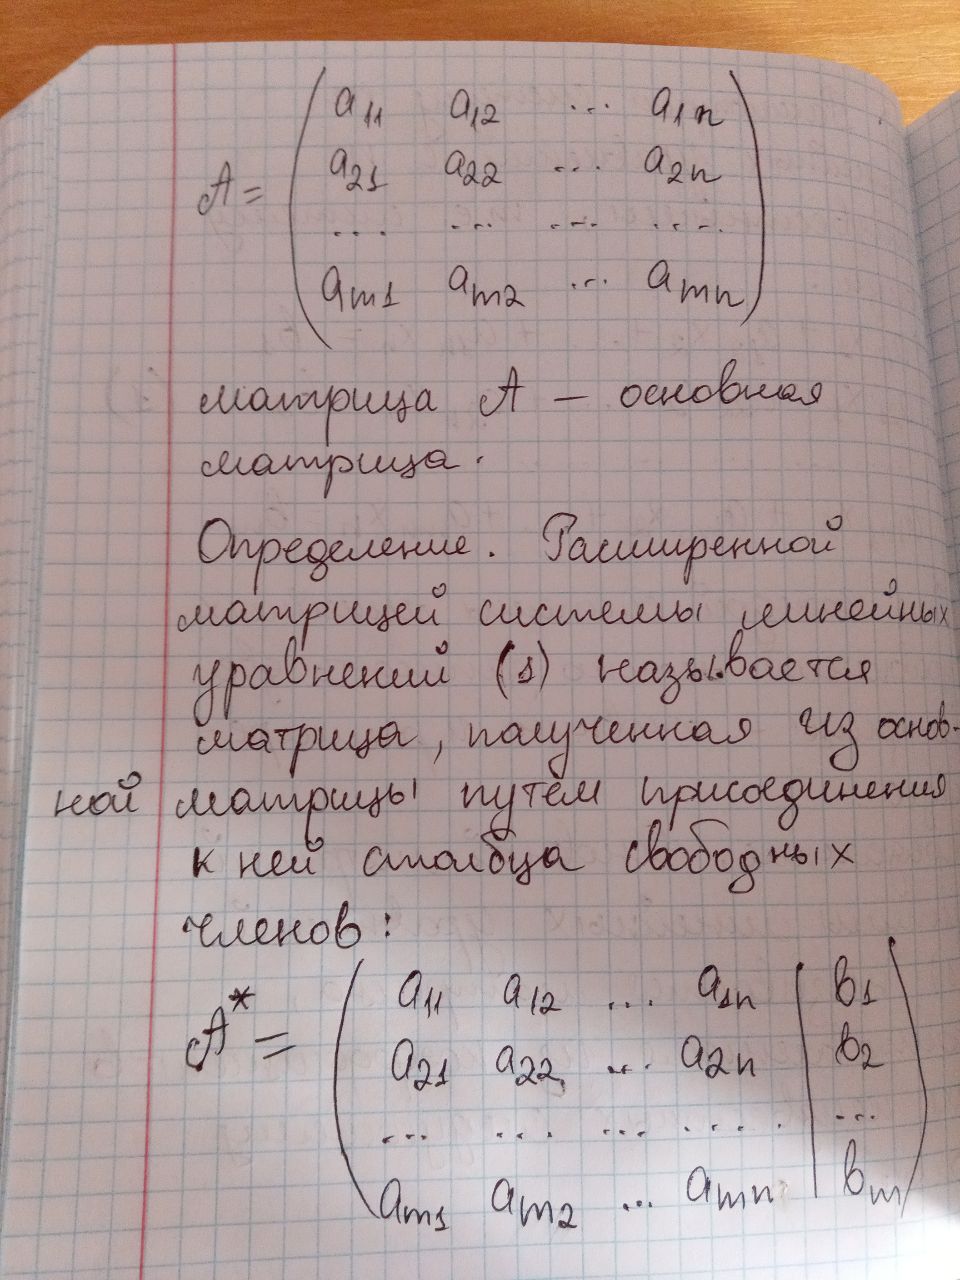 a11 a12 ... a1n
a21 a22 ... a2n
A =
... ... ... ...
am1 am2 ... amn
матрица A – основная
матрица.
Определение. Расширенной
матрицей системы линейных
уравнений (1) называется
матрица, полученная из основ-
ной матрицы путём присоединения
к ней столбца свободных
членов:
a11 a12 ... a1n | b1
A* =
a21 a22 ... a2n | b2
... ... ... ... | ...
am1 am2 ... amn | bm